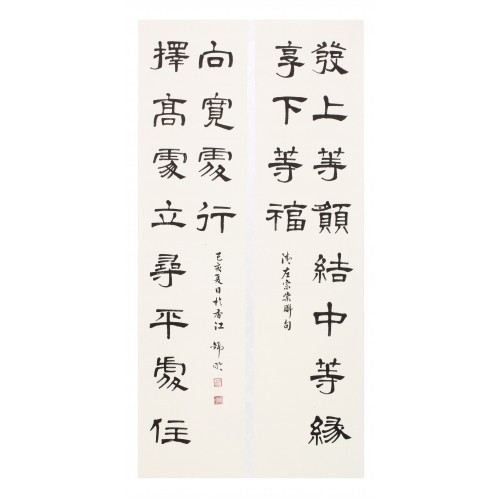 發上等願結中等緣
享下等福
清左宗棠聯句
擇高處立尋平處住
向寬處行
己亥夏日於香江